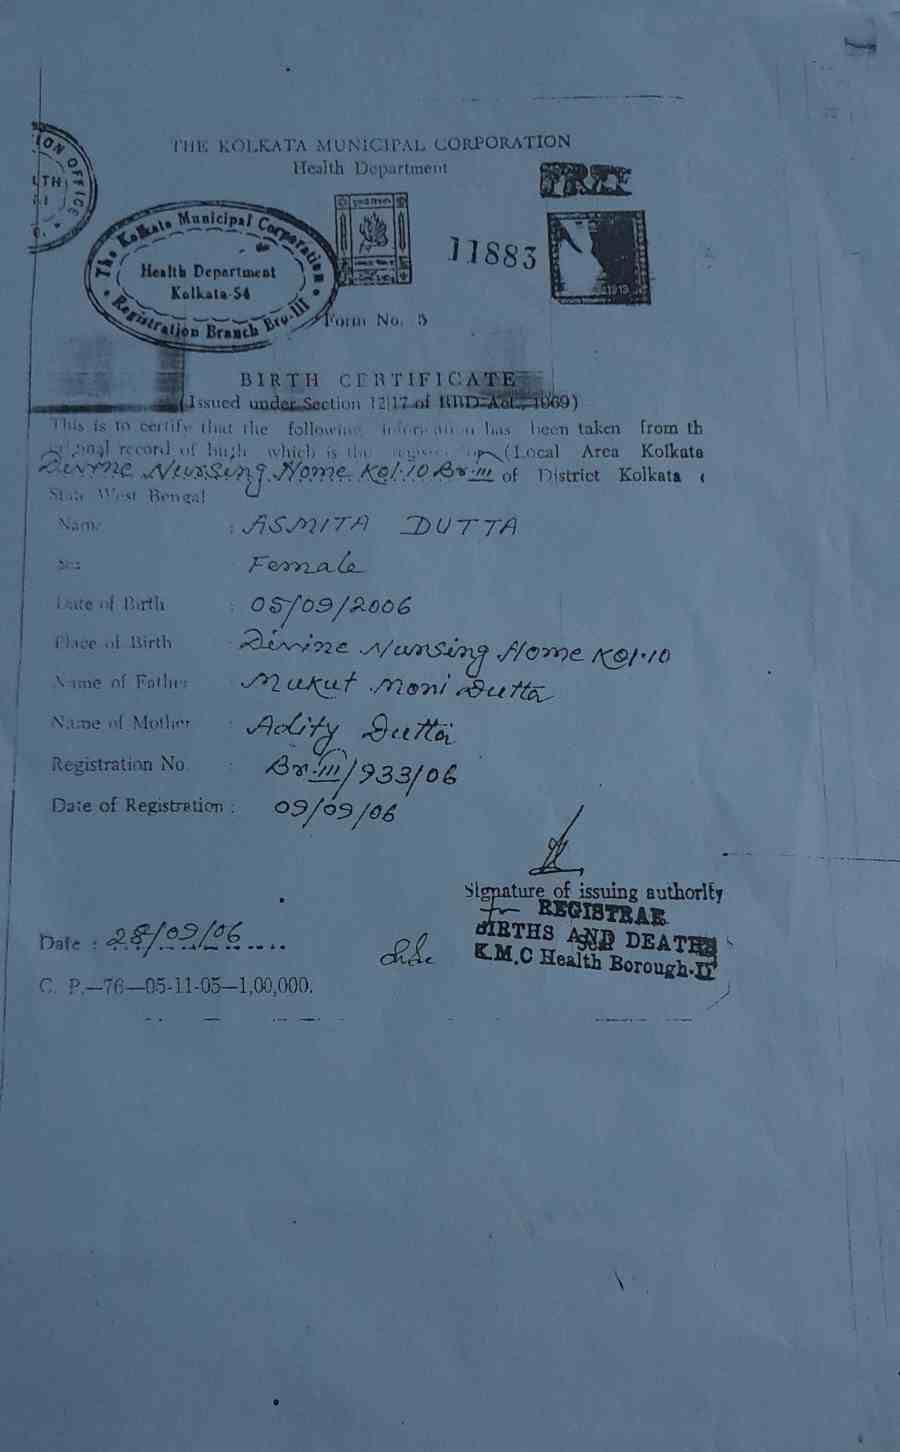 THE KOLKATA MUNICIPAL CORPORATION
Health Department
FREE
ION OFFICE
The Kolkata Municipal Corporation
Health Department
Kolkata-54
Registration Branch Bro-III
11883
Form No. 5
BIRTH CERTIFICATE
(Issued under Section 12|17 of RBD Act., 1969)
This is to certify that the following information has been taken from th
record of birth which is the register (Local Area Kolkata
Divine Nursing Home Kol-10 Br-III of District Kolkata
State West Bengal
Name : ASMITA DUTTA
Sex Female
Date of Birth : 05/09/2006
Place of Birth Divine Nursing Home Kol-10
Name of Father Mukut Moni Dutta
Name of Mother : Adity Dutta
Registration No. : Br-III/933/06
Date of Registration : 09/09/06
Signature of issuing authority
REGISTRAR
BIRTHS AND DEATHS
K.M.C Health Borough-II
Date : 28/09/06
C. P.—76—05-11-05—1,00,000.